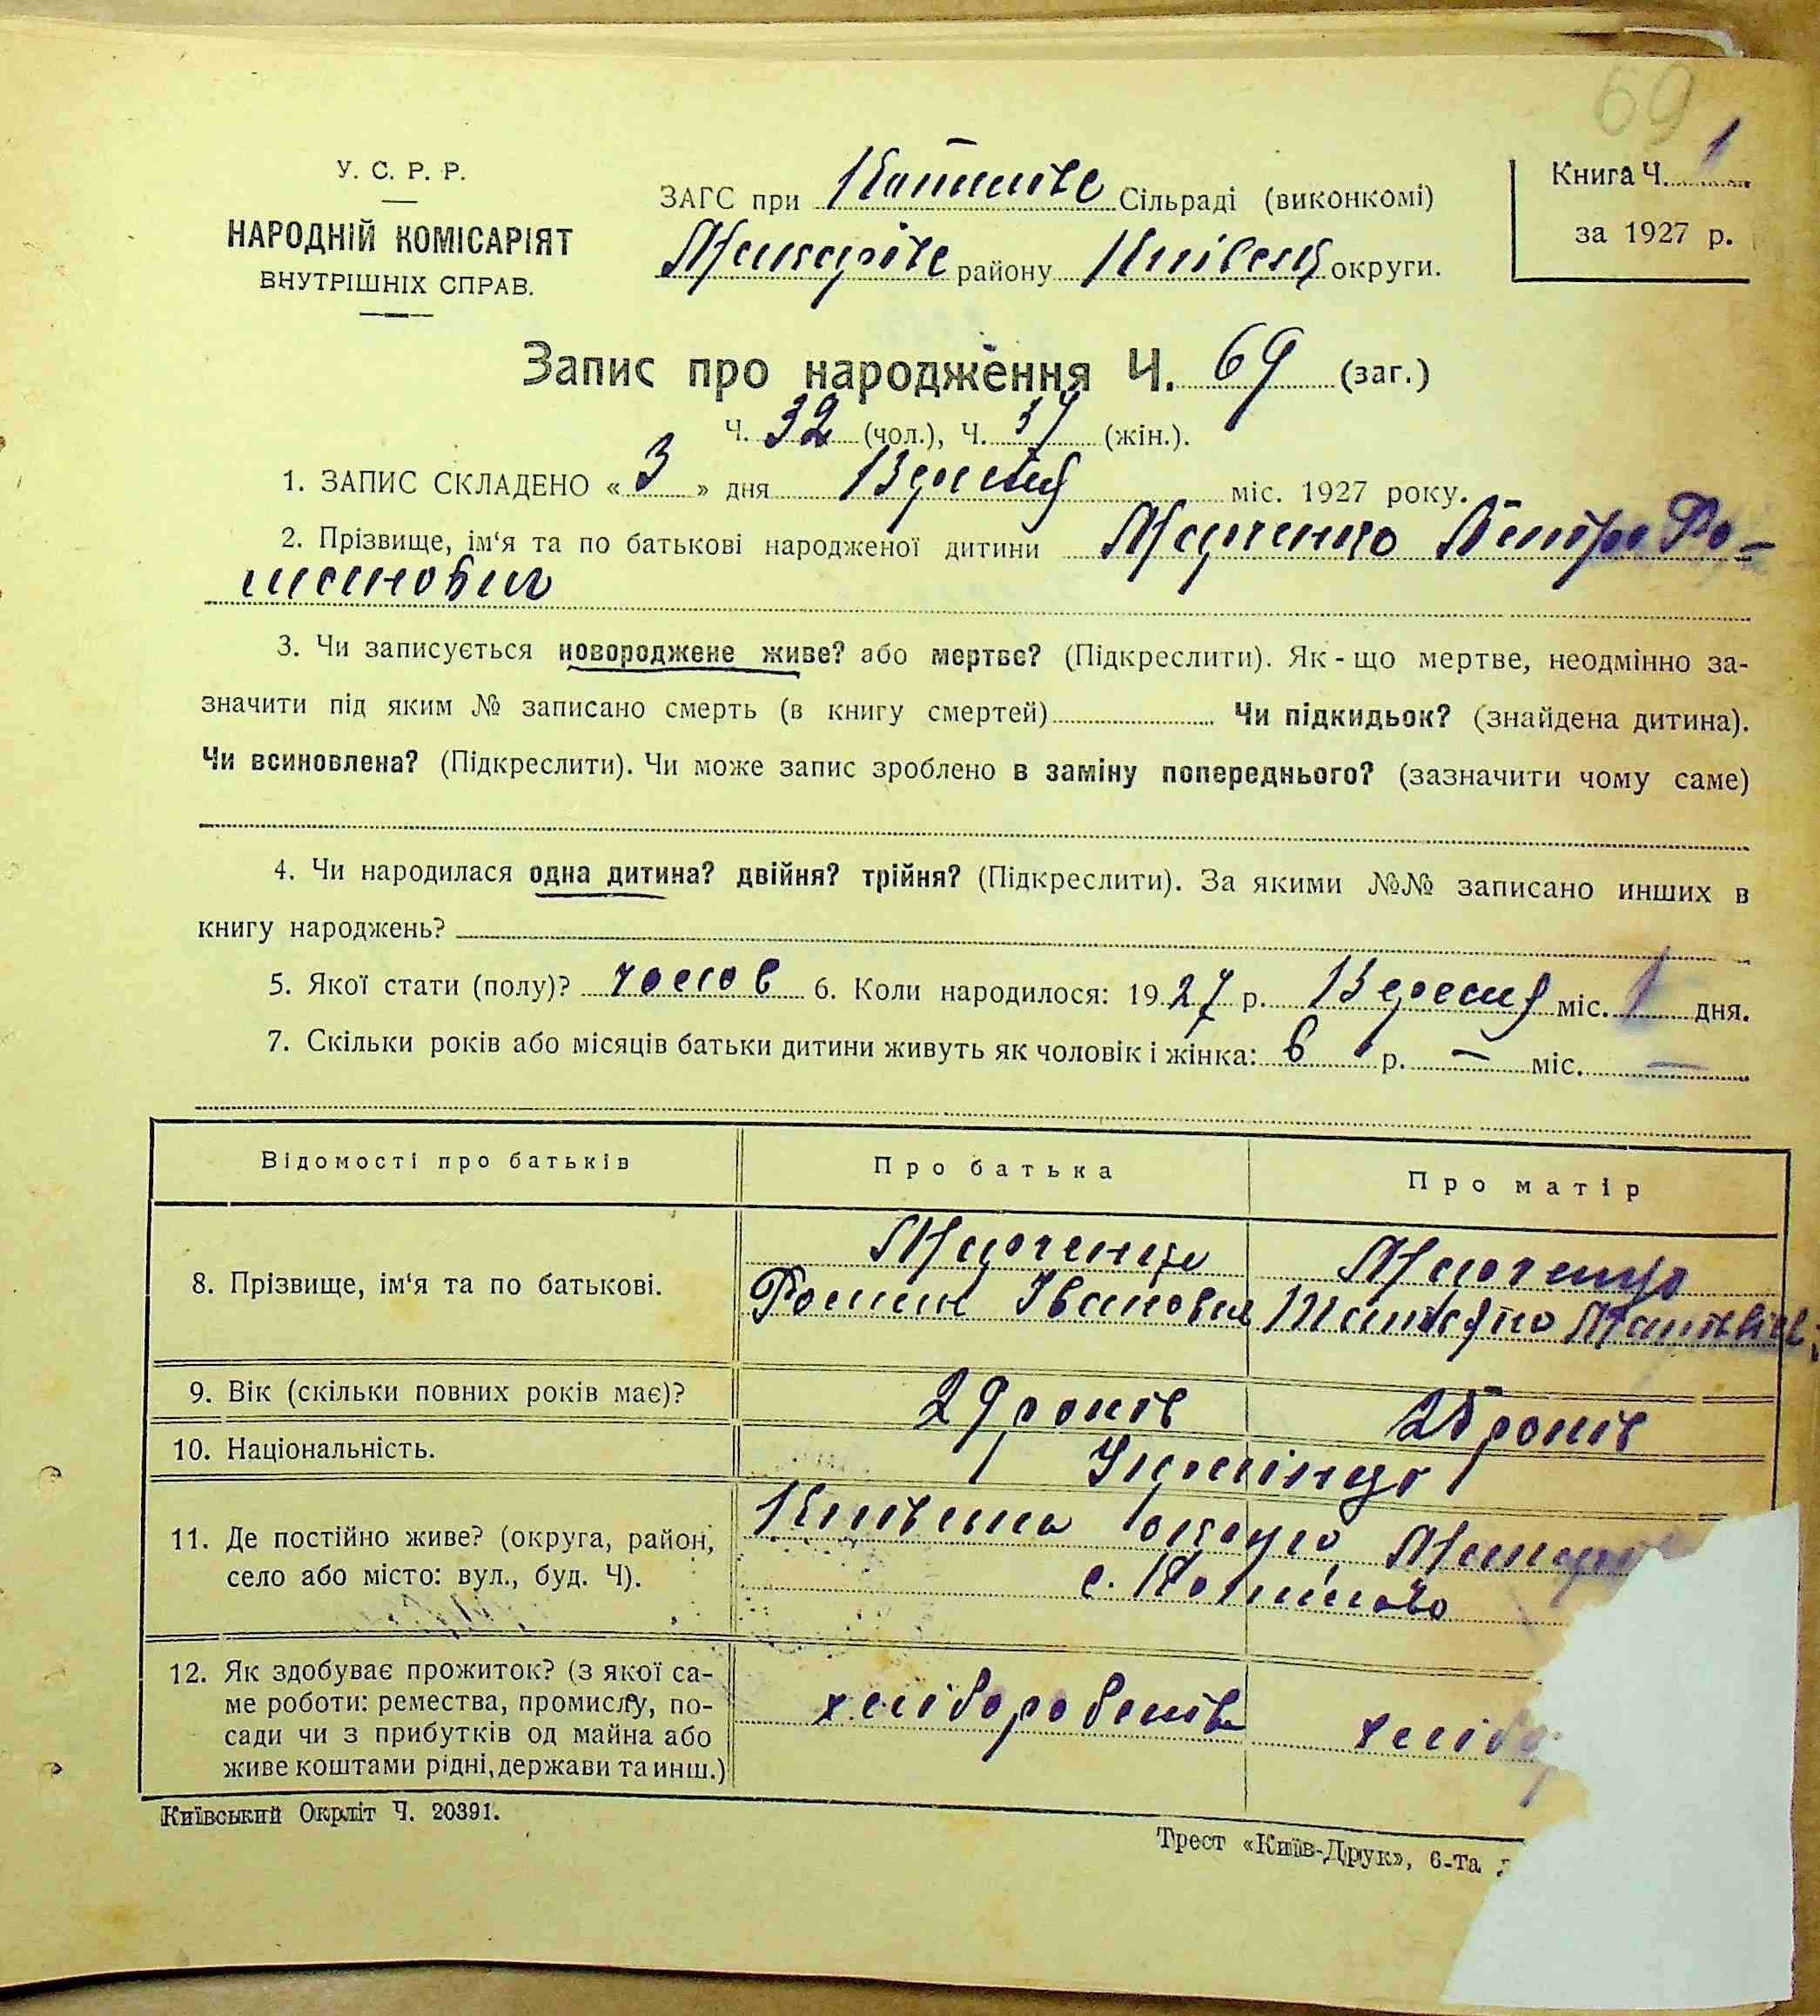 69
У. С. Р. Р.
НАРОДНІЙ КОМІСАРІЯТ
ВНУТРІШНІХ СПРАВ.
ЗАГС при Сільраді (виконкомі)
Макарівс району Київськ округи.
Книга Ч. 1
за 1927 р.
Запис про народження Ч. 69 (заг.)
Ч. 32 (чол.), Ч. 37 (жін.).
1. ЗАПИС СКЛАДЕНО « 3 » дня Вересня міс. 1927 року.
2. Прізвище, ім‘я та по батькові народженої дитини Марченко Петро Ро-
манович
3. Чи записується новороджене живе? або мертве? (Підкреслити). Як-що мертве, неодмінно за-
значити під яким № записано смерть (в книгу смертей) Чи підкидьок? (знайдена дитина).
Чи всиновлена? (Підкреслити). Чи може запис зроблено в заміну попереднього? (зазначити чому саме)
4. Чи народилася одна дитина? двійня? трійня? (Підкреслити). За якими №№ записано инших в
книгу народжень?
5. Якої стати (полу)? чолов 6. Коли народилося: 1927 р. Вересня міс. 1 дня.
7. Скільки років або місяців батьки дитини живуть як чоловік і жінка: 6 р. — міс. —
Відомості про батьків Про батька Про матір
8. Прізвище, ім‘я та по батькові. Марченко Марченко
Роман Іванович
9. Вік (скільки повних років має)? 29 років 25 років
10. Національність. Українці
11. Де постійно живе? (округа, район, Київська округа, Макар
село або місто: вул., буд. Ч). с.
12. Як здобуває прожиток? (з якої са-
ме роботи: ремества, промислу, по- хліборобство хлібо
сади чи з прибутків од майна або
живе коштами рідні, держави та инш.)
Київський Окрліт Ч. 20391.
Трест «Київ-Друк», 6-та